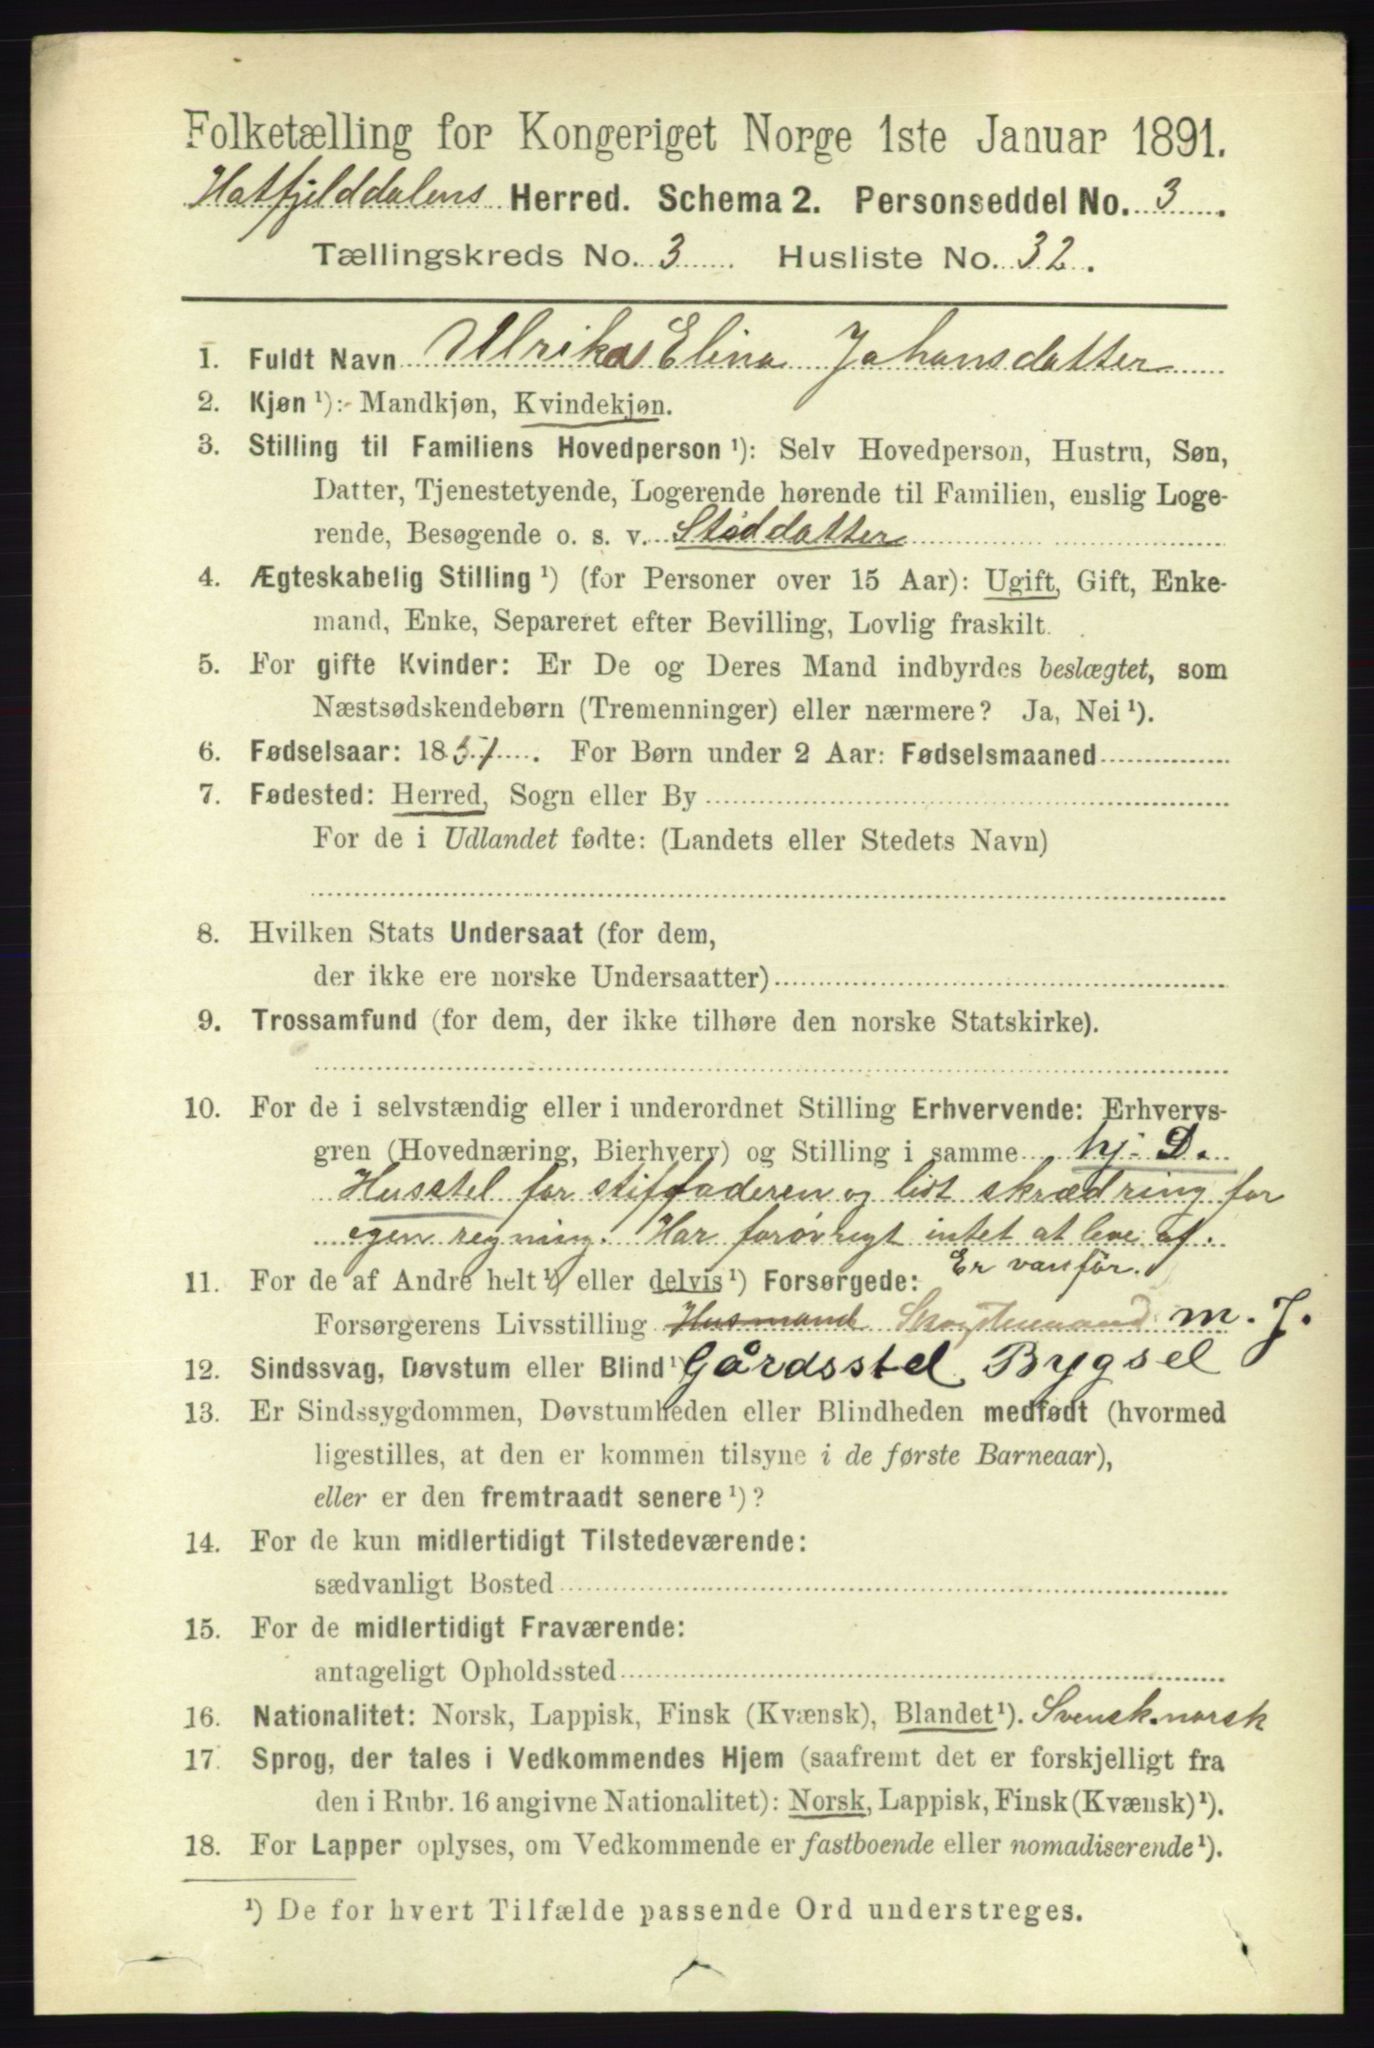 Folketælling for Kongeriget Norge 1ste Januar 1891.
Hatfjelddalens Herred. Schema 2. Personseddel No. 3.
Tællingskreds No. 3 Husliste No. 32.
1. Fuldt Navn Ulrika Elina Johansdatter
2. Kjøn ¹): Mandkjøn, Kvindekjøn.
3. Stilling til Familiens Hovedperson ¹): Selv Hovedperson, Hustru, Søn,
Datter, Tjenestetyende, Logerende hørende til Familien, enslig Loge-
rende, Besøgende o. s. v. Stifdatter
4. Ægteskabelig Stilling ¹) (for Personer over 15 Aar): Ugift, Gift, Enke-
mand, Enke, Separeret efter Bevilling, Lovlig fraskilt.
5. For gifte Kvinder: Er De og Deres Mand indbyrdes beslægtet, som
Næstsødskendebørn (Tremenninger) eller nærmere? Ja, Nei ¹).
6. Fødselsaar: 1851. For Børn under 2 Aar: Fødselsmaaned
7. Fødested: Herred, Sogn eller By
For de i Udlandet fødte: (Landets eller Stedets Navn)
8. Hvilken Stats Undersaat (for dem,
der ikke ere norske Undersaatter)
9. Trossamfund (for dem, der ikke tilhøre den norske Statskirke).
10. For de i selvstændig eller i underordnet Stilling Erhvervende: Erhvervs-
gren (Hovednæring, Bierhverv) og Stilling i samme hj. D.
Husstel for stiffaderen og lidt skrædring for
egen regning. Har forøvrigt intet at leve af.
Er vanfør.
11. For de af Andre helt ¹) eller delvis ¹) Forsørgede:
Forsørgerens Livsstilling Husmand m. J.
12. Sindssvag, Døvstum eller Blind ¹) Gårdsstel Bygsel
13. Er Sindssygdommen, Døvstumheden eller Blindheden medfødt (hvormed
ligestilles, at den er kommen tilsyne i de første Barneaar),
eller er den fremtraadt senere ¹)?
14. For de kun midlertidigt Tilstedeværende:
sædvanligt Bosted
15. For de midlertidigt Fraværende:
antageligt Opholdssted
16. Nationalitet: Norsk, Lappisk, Finsk (Kvænsk), Blandet ¹). Svensk-norsk
17. Sprog, der tales i Vedkommendes Hjem (saafremt det er forskjelligt fra
den i Rubr. 16 angivne Nationalitet): Norsk, Lappisk, Finsk (Kvænsk) ¹).
18. For Lapper oplyses, om Vedkommende er fastboende eller nomadiserende ¹).
¹) De for hvert Tilfælde passende Ord understreges.